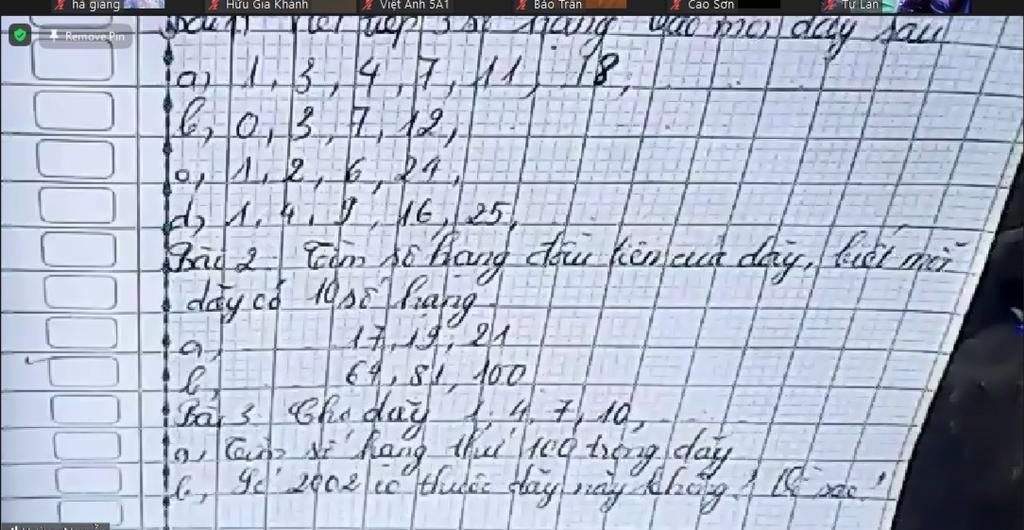 hà giang Hữu Gia Khánh Việt Anh 5A1 Bảo Trân Cao Sơn Tự Lan
Remove Pin
Bài 1 Viết tiếp 3 số hạng vào mỗi dãy sau
a, 1, 3, 4, 7, 11, 18,
b, 0, 3, 7, 12,
c, 1, 2, 6, 24,
d, 1, 4, 9, 16, 25,
Bài 2 Tìm số hạng đầu tiên của dãy, biết mỗi
dãy có 10 số hạng
a, 17, 19, 21
b, 64, 81, 100
Bài 3 Cho dãy 1, 4, 7, 10,
a, Tìm số hạng thứ 100 trong dãy
b, Số 2002 có thuộc dãy này không? Vì sao?